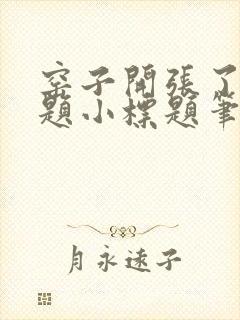 窑子開張了
題小標題筆
月永远子